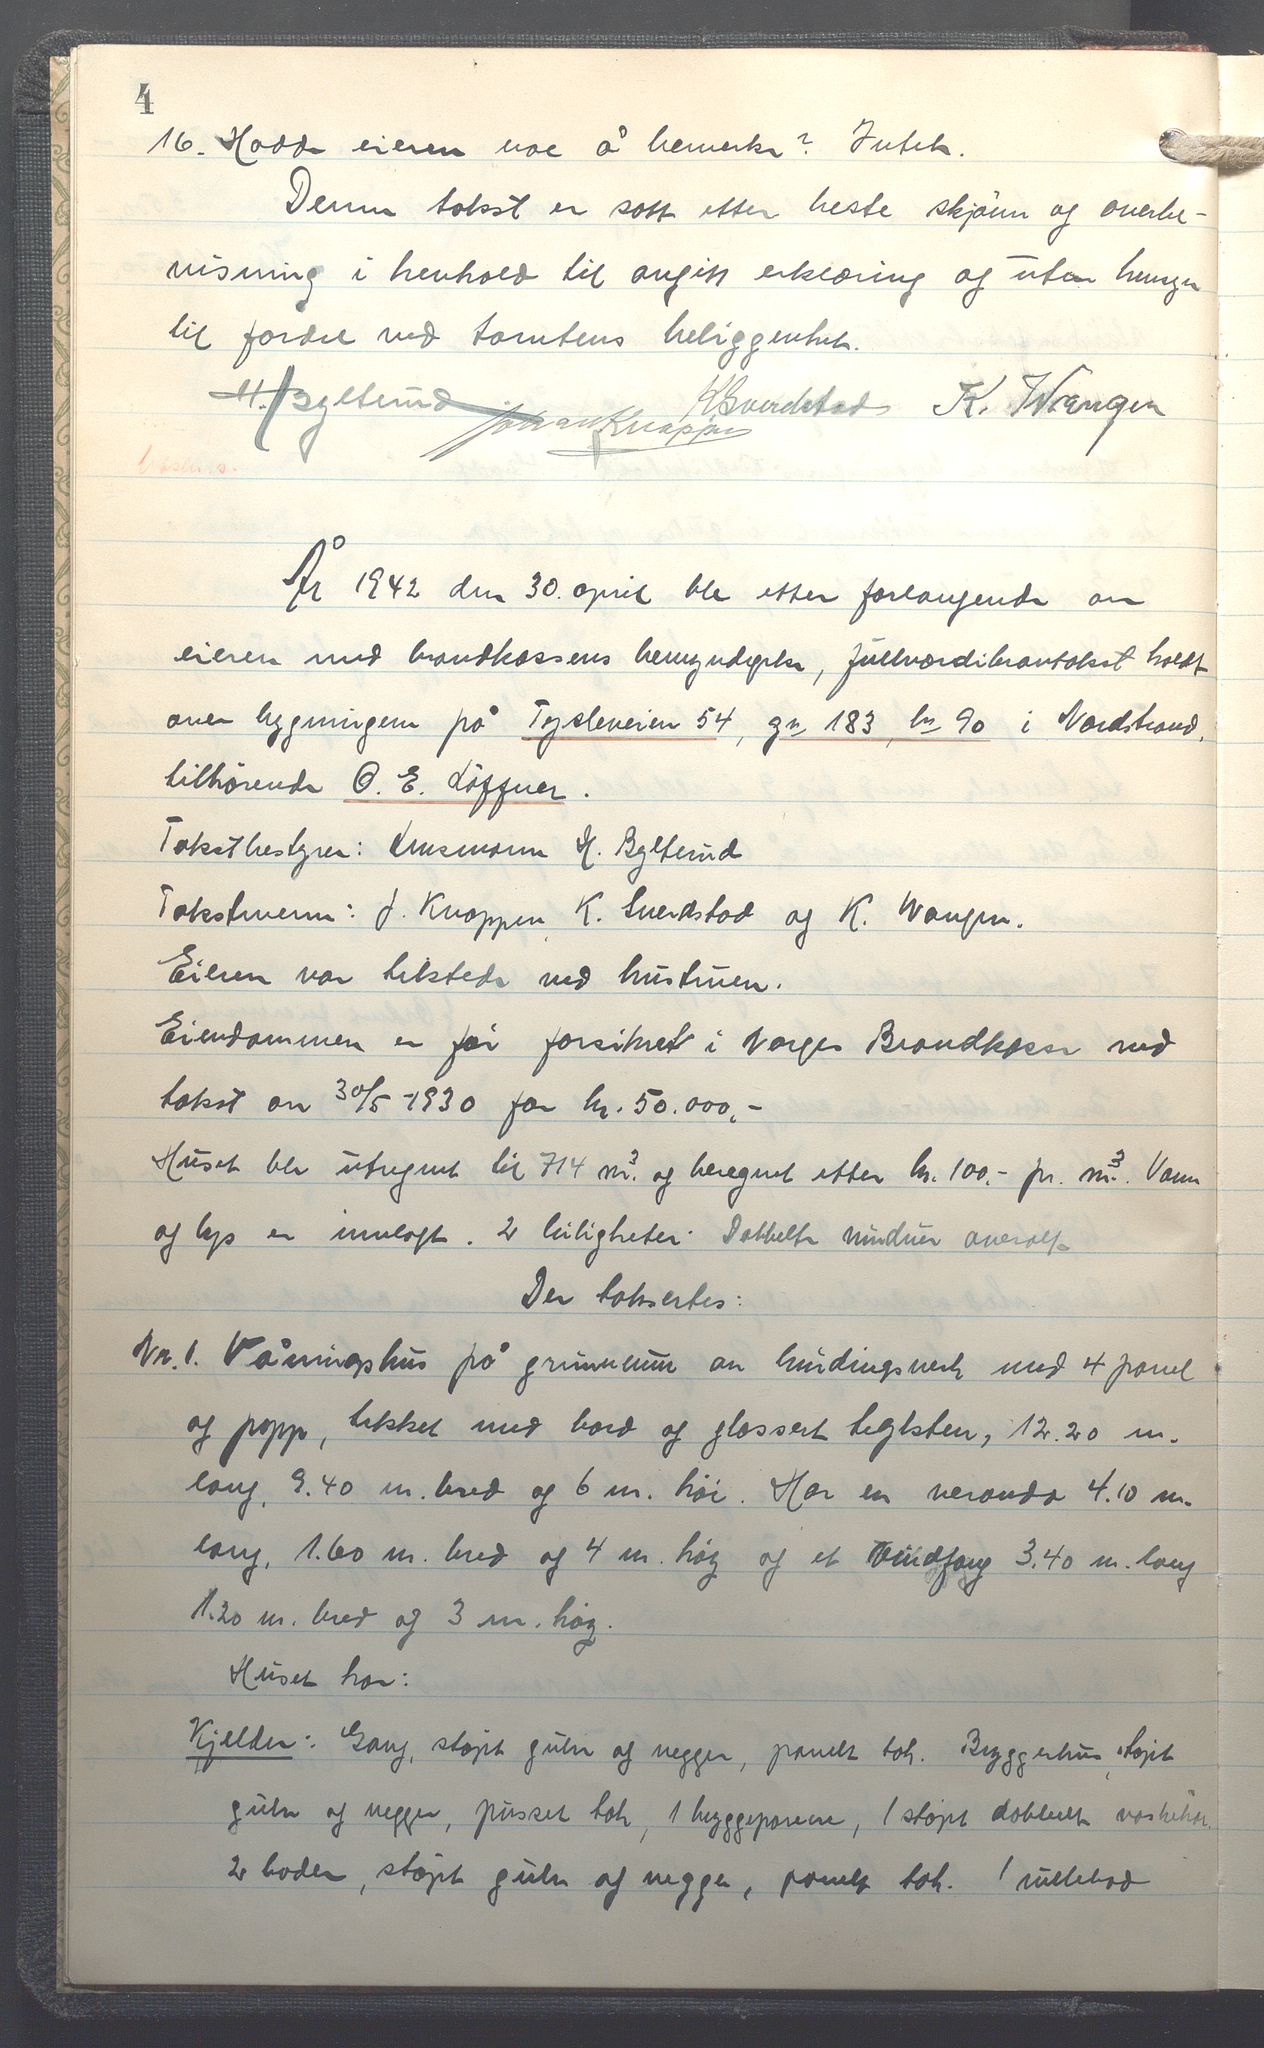 4
16. Hadde eieren noe å bemerke? Intet.
Denne takst er satt etter beste skjønn og overbe-
visning i henhold til avgitt erklæring og uten hensyn
til fordel ved tomtens beliggenhet.
H. Bylterud Johan Knappen K Sverdstad K. Wangen
År 1942 den 30. april ble etter forlangende av
eieren med brandkassens bemyndigelse, fullverdibrantakst holdt
over bygningene på Tysleveien 54, gn 183, bn 90 i Nordstrand,
tilhørende O. E. Löffner.
Takstbestyrer: Lensmann H. Bylterud
Takstmenn: J. Knappen, K. Sverdstad og K. Wangen.
Eieren var tilstede ved hustruen.
Eiendommen er før forsikret i Norges Brandkasse ved
takst av 30/5-1930 for kr. 50.000,-
Huset ble utregnet til 714 m³. og beregnet etter kr. 100,- pr. m³. Vann
og lys er innlagt. 2 leiligheter. Dobbelte vinduer overalt
Der taksertes:
Nr. 1. Våningshus på grunnmur av bindingsverk med 4 panel
og papp, tekket med bord og glassert teglsten, 12.20 m.
lang, 9.40 m. bred og 6 m. høi. Har en veranda 4.10 m.
lang, 1.60 m. bred og 4 m. høg og et Vindfang 3.40 m. lang
1.20 m. bred og 3 m. høg.
Huset har:
Kjelder: Gang, støpt gulv og vegger, panelt tak. Bryggerhus, støpt
gulv og vegger, pusset tak, 1 bryggepanne, 1 støpt dobbelt vaskekar.
2 boder, støpt gulv og vegger, panelt tak. 1 rullebod